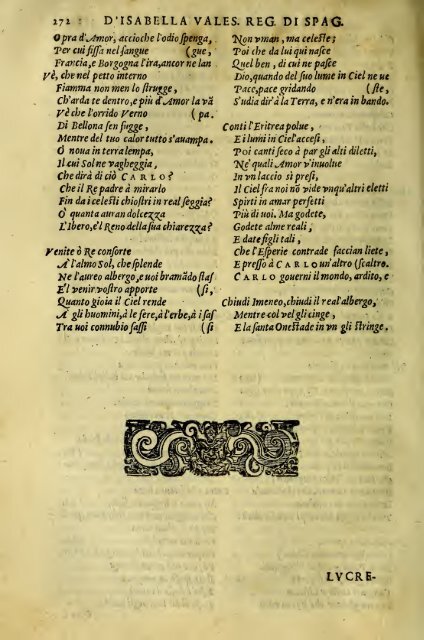 272 D'ISABELLA VALES. REG. DI SPAG.
Opra d'Amor, accioche l'odio spenga,
Per cui fissa nel sangue (gue,
Francia, e Borgogna l'ira, ancor ne lan
Vè, che nel petto interno
Fiamma non men lo strugge,
Ch'arda te dentro, e più d'Amor la vã
Vè che l'orrido Verno (pa.
Di Bellona sen fugge,
Mentre del tuo calor tutto s'auampa.
O noua in terra lampa,
Il cui Sol ne vagheggia,
Che dirà di ciò CARLO?
Che il Re padre à mirarlo
Fin da i celesti chiostri in real seggia?
O' quanta auran dolcezza
L'Ibero, e'l Reno della sua chiarezza?
Venite ò Re consorte
A l'almo Sol, che splende
Ne l'aureo albergo, e uoi bramãdo stas
E'l venir vostro apporte (si,
Quanto gioia il Ciel rende
A gli huomini, à le fere, à l'erbe, à i sas
Tra uoi connubio fassi (si
Non vman, ma celeste;
Poi che da lui qui nasce
Quel ben, di cui ne pasce
Dio, quando del suo lume in Ciel ne ue
Pace, pace gridando (ste,
S'udia dir' à la Terra, e n'era in bando.
Conti l'Eritrea polue,
E i lumi in Ciel'accesi,
Poi canti seco à par gli alti diletti,
Ne' quali Amor v'inuolue
In vn laccio sì presi,
Il Ciel fra noi nõ vide vnqu'altri eletti
Spirti in amar perfetti
Più di uoi. Ma godete,
Godete alme reali,
E date figli tali,
Che l'Esperie contrade faccian liete,
E presso à CARLO un'altro (scaltro.
CARLO gouerni il mondo, ardito, e
Chiudi Imeneo, chiudi il real'albergo,
Mentre col vel gli cinge,
E la santa Onestade in vn gli stringe.
LVCRE-